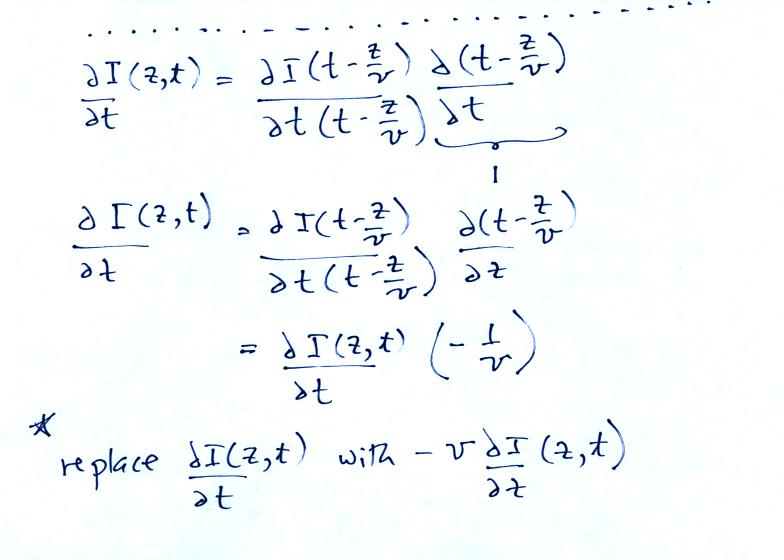 ∂I(z,t)/∂t = ∂I(t-z/v)/∂t(t-z/v) ∂(t-z/v)/∂t
1
∂I(z,t)/∂t = ∂I(t-z/v)/∂t(t-z/v) ∂(t-z/v)/∂z
= ∂I(z,t)/∂t (-1/v)
* replace ∂I(z,t)/∂t with -v ∂I/∂z (z,t)